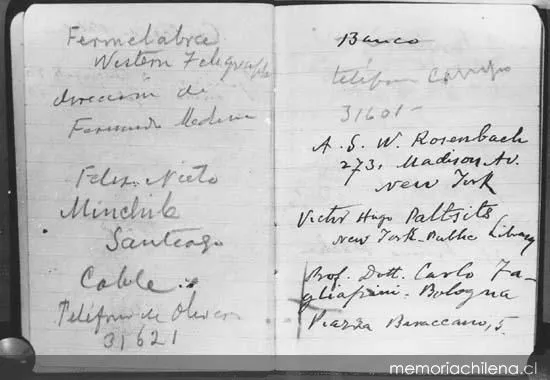 Fermelabra
Western Telegraph
dirección de
Fernando Medina
Felix Nieto
Minchile
Santiago
Cable
Teléfono de
31621
Banco
teléfono
31601-
A. S. W. Rosenbach
273, Madison Av.
New York
Victor Hugo Paltsits
New York Public Library
Prof. Dott. Carlo Ta-
gliafini. Bologna
Piazza Baraccano, 5.
memoriachilena.cl